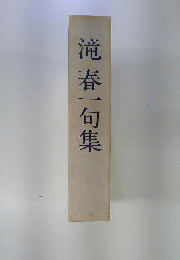 滝春一句集